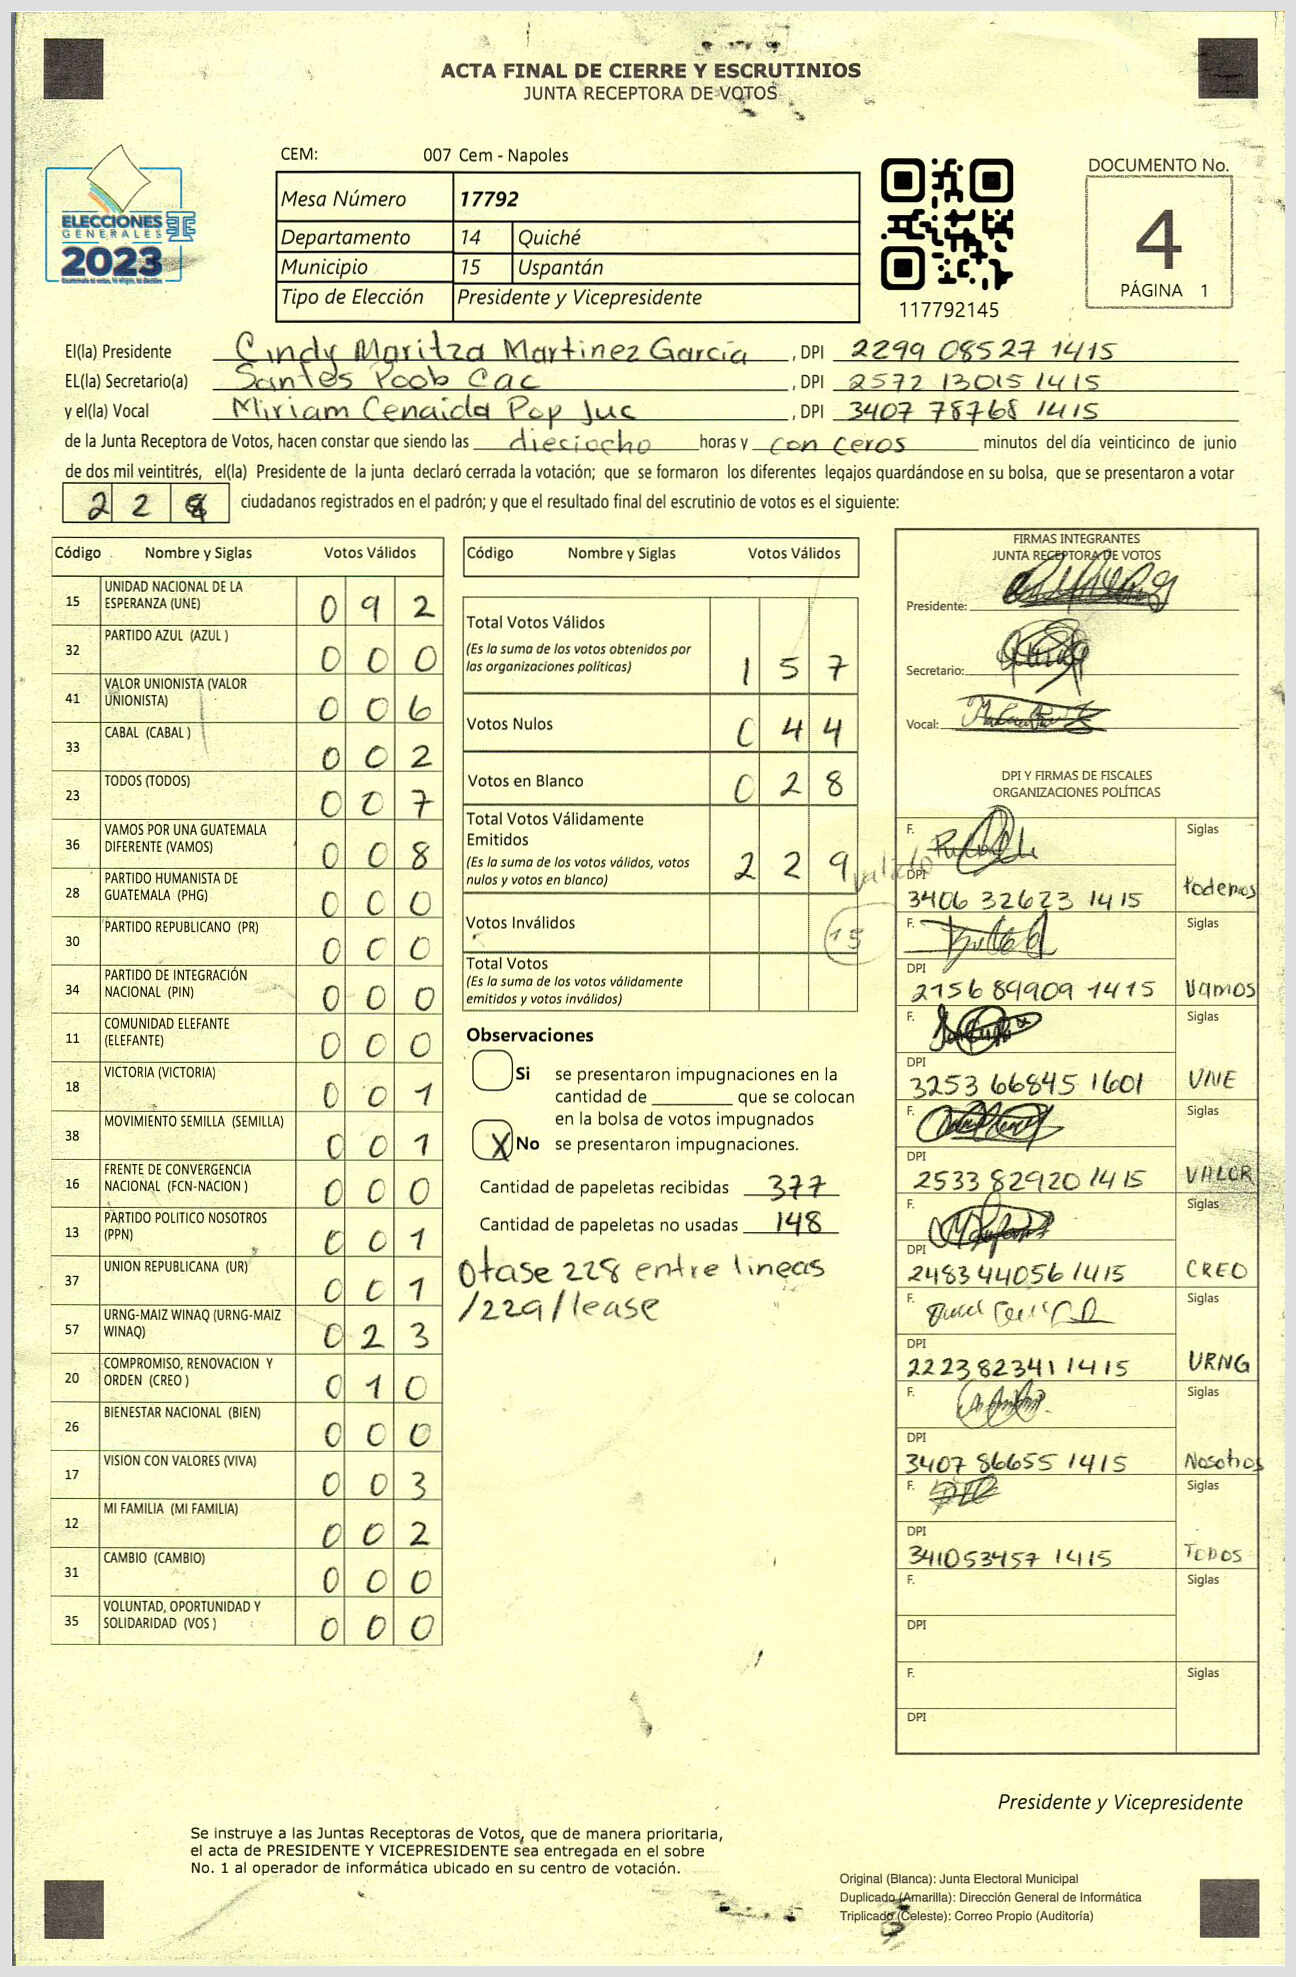 ACTA FINAL DE CIERRE Y ESCRUTINIOS
JUNTA RECEPTORA DE VOTOS
CEM: 007 Cem - Napoles
Mesa Número 17792
Departamento 14 Quiché
Municipio 15 Uspantán
Tipo de Elección Presidente y Vicepresidente
ELECCIONES
GENERALES
2023
117792145
DOCUMENTO No.
4
PÁGINA 1
El(la) Presidente Cindy Maritza Martinez García , DPI 2299 08527 1415
EL(la) Secretario(a) Santos Poob Cac , DPI 2572 13015 1415
y el(la) Vocal Miriam Cenaida Pop Juc , DPI 3407 78768 1415
de la Junta Receptora de Votos, hacen constar que siendo las dieciocho horas y con ceros minutos del día veinticinco de junio
de dos mil veintitrés, el(la) Presidente de la junta declaró cerrada la votación; que se formaron los diferentes legajos guardándose en su bolsa, que se presentaron a votar
2 2 ciudadanos registrados en el padrón; y que el resultado final del escrutinio de votos es el siguiente:
Código Nombre y Siglas Votos Válidos
15 UNIDAD NACIONAL DE LA ESPERANZA (UNE) 0 9 2
32 PARTIDO AZUL (AZUL ) 0 0 0
41 VALOR UNIONISTA (VALOR UNIONISTA) 0 0 6
33 CABAL (CABAL ) 0 0 2
23 TODOS (TODOS) 0 0 7
36 VAMOS POR UNA GUATEMALA DIFERENTE (VAMOS) 0 0 8
28 PARTIDO HUMANISTA DE GUATEMALA (PHG) 0 0 0
30 PARTIDO REPUBLICANO (PR) 0 0 0
34 PARTIDO DE INTEGRACIÓN NACIONAL (PIN) 0 0 0
11 COMUNIDAD ELEFANTE (ELEFANTE) 0 0 0
18 VICTORIA (VICTORIA) 0 0 1
38 MOVIMIENTO SEMILLA (SEMILLA) 0 0 1
16 FRENTE DE CONVERGENCIA NACIONAL (FCN-NACION ) 0 0 0
13 PARTIDO POLITICO NOSOTROS (PPN) 0 0 1
37 UNION REPUBLICANA (UR) 0 0 1
57 URNG-MAIZ WINAQ (URNG-MAIZ WINAQ) 0 2 3
20 COMPROMISO, RENOVACION Y ORDEN (CREO ) 0 1 0
26 BIENESTAR NACIONAL (BIEN) 0 0 0
17 VISION CON VALORES (VIVA) 0 0 3
12 MI FAMILIA (MI FAMILIA) 0 0 2
31 CAMBIO (CAMBIO) 0 0 0
35 VOLUNTAD, OPORTUNIDAD Y SOLIDARIDAD (VOS ) 0 0 0
Código Nombre y Siglas Votos Válidos
Total Votos Válidos 1 5 7
(Es la suma de los votos obtenidos por
las organizaciones políticas)
Votos Nulos 0 4 4
Votos en Blanco 0 2 8
Total Votos Válidamente
Emitidos 2 2 9
(Es la suma de los votos válidos, votos
nulos y votos en blanco)
Votos Inválidos 15
Total Votos
(Es la suma de los votos válidamente
emitidos y votos inválidos)
Observaciones
Si se presentaron impugnaciones en la
cantidad de ________ que se colocan
en la bolsa de votos impugnados
X No se presentaron impugnaciones.
Cantidad de papeletas recibidas 377
Cantidad de papeletas no usadas 148
Otase 228 entre lineas
/229/lease
FIRMAS INTEGRANTES
JUNTA RECEPTORA DE VOTOS
Presidente:
Secretario:
Vocal:
DPI Y FIRMAS DE FISCALES
ORGANIZACIONES POLÍTICAS
F. Siglas
DPI
3406 32623 1415 Podemos
F. Siglas
DPI
2156 89909 1415 Vamos
F. Siglas
DPI
3253 66845 1601 UNE
F. Siglas
DPI
2533 82920 1415 VALOR
F. Siglas
DPI
2483 44056 1415 CREO
F. Siglas
DPI
2223 82341 1415 URNG
F. Siglas
DPI
3407 86655 1415 Nosotros
F. Siglas
DPI
341053457 1415 TODOS
F. Siglas
DPI
F. Siglas
DPI
Presidente y Vicepresidente
Se instruye a las Juntas Receptoras de Votos, que de manera prioritaria,
el acta de PRESIDENTE Y VICEPRESIDENTE sea entregada en el sobre
No. 1 al operador de informática ubicado en su centro de votación.
Original (Blanca): Junta Electoral Municipal
Duplicado (Amarilla): Dirección General de Informática
Triplicado (Celeste): Correo Propio (Auditoría)